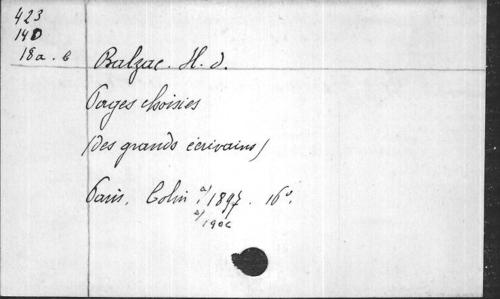 423
14D
18a. b
Balzac. H. d.
Pages choisies
(des grands écrivains)
Paris. Colin a/1897. 16º.
a/1906